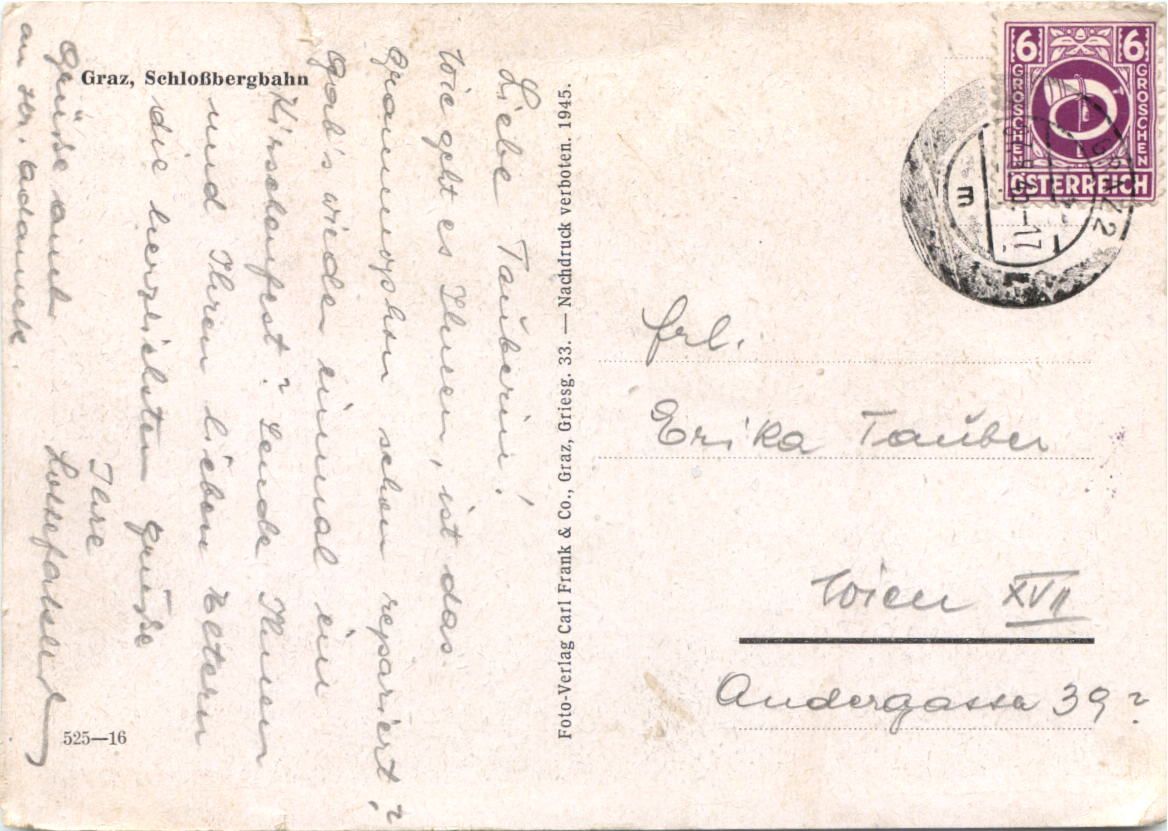 Graz, Schloßbergbahn
Liebe Tauberin!
Wie geht es Ihnen, ist das
Grammophon schon repariert?
Gab's wieder einmal ein
Kirschenfest? Sende Ihnen
und Ihren lieben Eltern
die herzlichsten Grüße
Ihre
Grüße auch
an Hr. Adamek
525—16
Foto-Verlag Carl Frank & Co., Graz, Griesg. 33. — Nachdruck verboten. 1945.
6 6
GROSCHEN GROSCHEN
ÖSTERREICH
Frl.
Erika Tauber
Wien XVII
Andergasse 39?